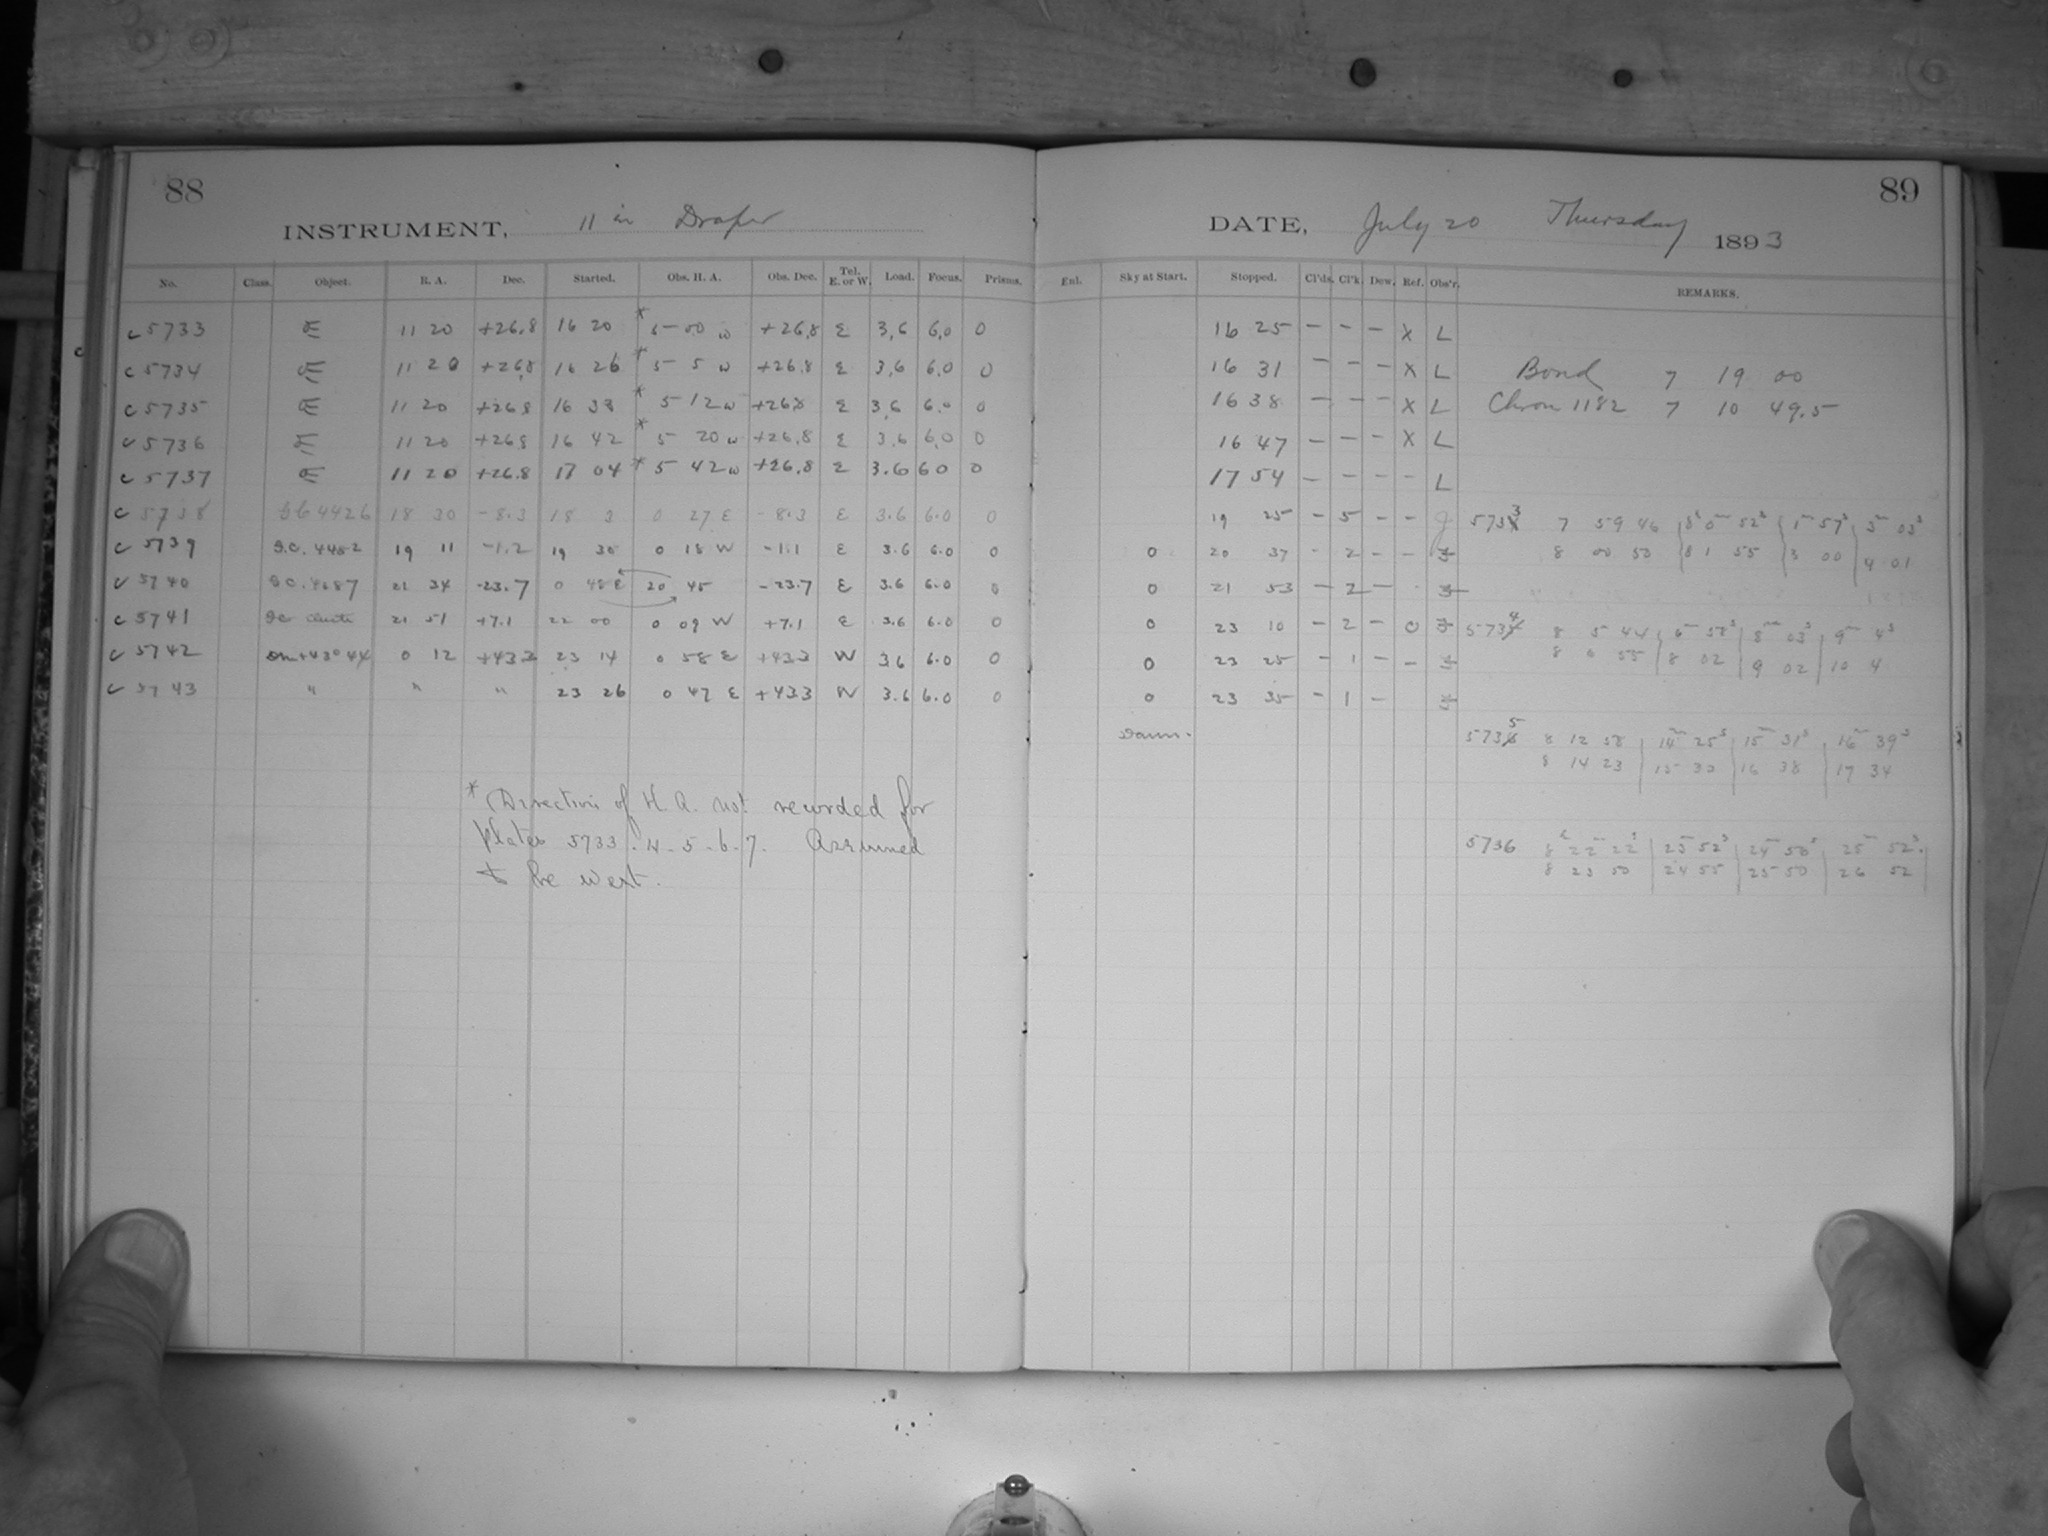 88
INSTRUMENT, 11 in Draper
No. Class. Object. R. A. Dec. Started. Obs. H. A. Obs. Dec. Tel. E. or W. Load. Focus. Prisms.
c 5733 11 20 +26.8 16 20 * 5 00 w +26.8 E 3.6 6.0 0
c 5734 11 20 +26.8 16 26 * 5 5 w +26.8 E 3.6 6.0 0
c 5735 11 20 +26.8 16 33 * 5 12 w +26.8 E 3.6 6.0 0
c 5736 11 20 +26.8 16 42 * 5 20 w +26.8 E 3.6 6.0 0
c 5737 11 20 +26.8 17 04 * 5 42 w +26.8 E 3.6 6.0 0
c 5738 4426 18 30 -8.3 18 3 0 27 E -8.3 E 3.6 6.0 0
c 5739 G.C. 4482 19 11 -1.2 19 30 0 18 W -1.1 E 3.6 6.0 0
c 5740 G.C. 4687 21 34 -23.7 0 48 E 20 45 -23.7 E 3.6 6.0 0
c 5741 21 51 +7.1 22 00 0 09 W +7.1 E 3.6 6.0 0
c 5742 Dm+43°44 0 12 +43.3 23 14 0 58 E +43.3 W 3.6 6.0 0
c 5743 " " " 23 26 0 47 E +43.3 W 3.6 6.0 0
* Direction of H. A. not recorded for
plates 5733.4-5-6-7. Assumed
to be west.
89
DATE, July 20 Thursday 1893
Enl. Sky at Start. Stopped. Cl'ds. Cl'k. Dew. Ref. Obs'r. REMARKS.
16 25 - - - X L
16 31 - - - X L Bond 7 19 00
16 38 - - - X L Chron 1182 7 10 49.5
16 47 - - - X L
17 54 - - - - L
19 25 - 5 - - 5733 7 59 46 8 0 52 1 57 3 03
0 20 37 - 2 - - 8 00 50 8 1 55 3 00 4 01
0 21 53 - 2 -
0 23 10 - 2 - 0 5734 8 5 44 6 58 8 03 9 4
0 23 25 - 1 - - 8 6 55 8 02 9 02 10 4
0 23 35 - 1 -
Dawn. 5735 8 12 58 14 25 15 31 16 39
8 14 23 15 30 16 38 17 34
5736 8 22 22 23 52 24 56 25 52
8 23 50 24 55 25 50 26 52